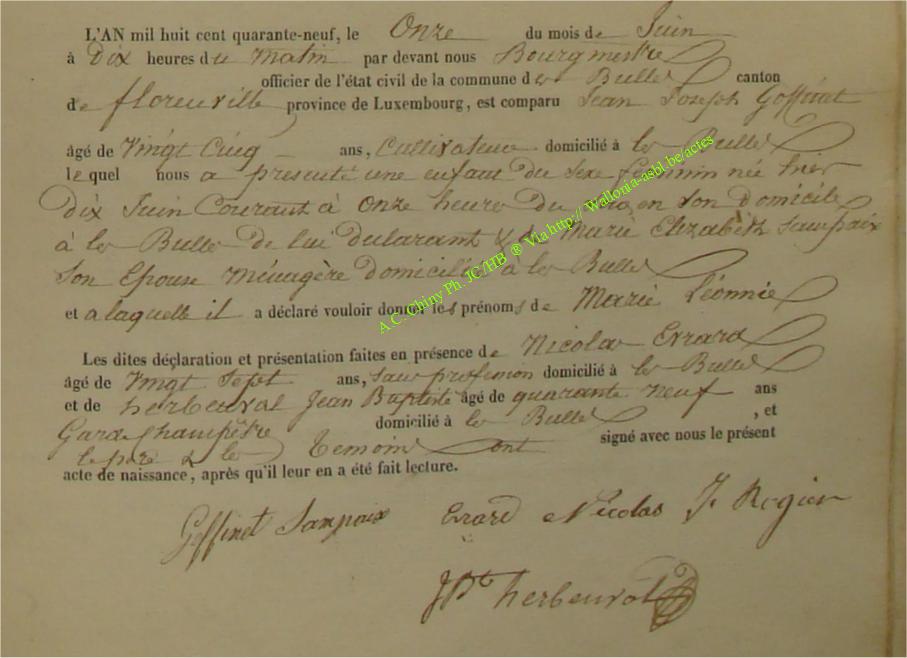 L'AN mil huit cent quarante-neuf, le Onze du mois de Juin
à Dix heures du matin par devant nous Bourgmestre
officier de l'état civil de la commune de Bulles canton
de florenville province de Luxembourg, est comparu Jean Joseph Goffinet
âgé de Vingt Cinq ans, Cultivateur domicilié à les Bulles
lequel nous a présenté une enfant du sexe féminin née hier
dix Juin Courant à Onze heure du en Son domicile
à les Bulles de lui déclarant & de Marie Elizabeth Saupaix
Son Epouse Ménagère domiciliée à les Bulles
et a laquelle il a déclaré vouloir donner les prénoms de Marie Léonnie
Les dites déclaration et présentation faites en présence de Nicolas Errard
âgé de Vingt Sept ans, sans profession domicilié à les Bulles
et de herbeuval Jean Baptiste âgé de quarante neuf ans
Garde Champêtre domicilié à les Bulles , et
le père & les Temoins ont signé avec nous le présent
acte de naissance, après qu'il leur en a été fait lecture.
Goffinet Sanpaix Erard Nicolas J. Rogier
JBte herbeuval
A.C. Chiny Ph. JC/HB ® Via http:// Wallonia-asbl.be/actes